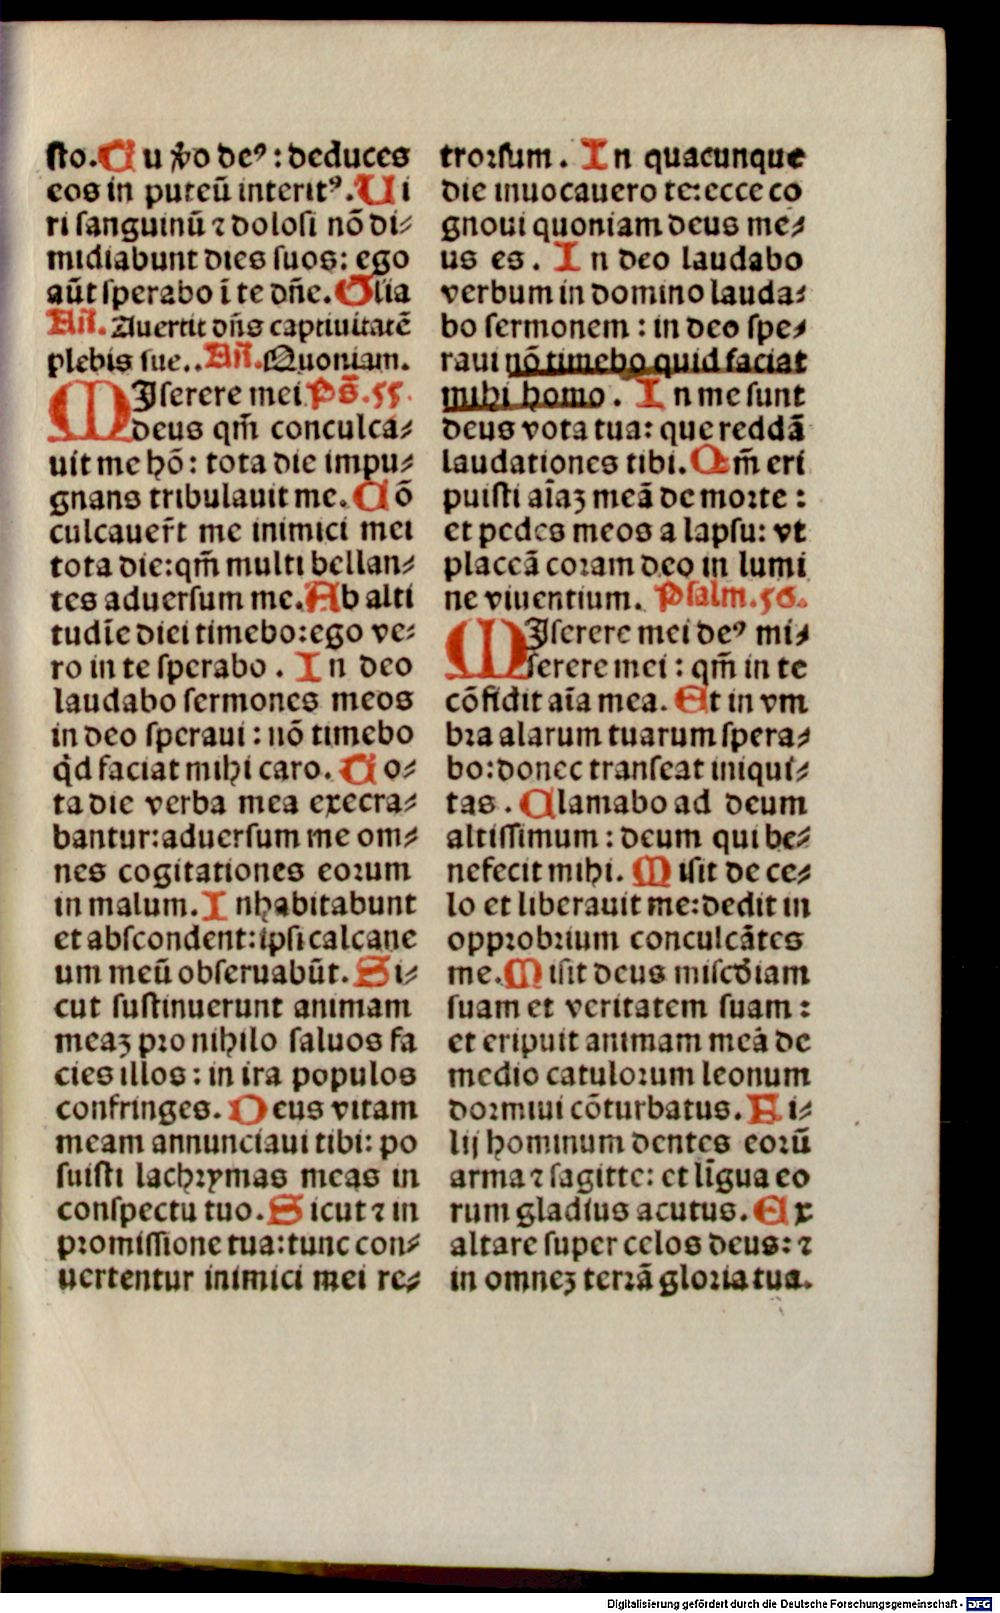 sto. Tu ꝟo deꝰ: deduces
eos in puteū interitꝰ. Ui
ri sanguinū ⁊ dolosi nō di⸗
midiabunt dies suos: ego
aūt sperabo ī te dn̄e. Glīa
Añ. Auertit dn̄s captiuitatē
plebis sue.. Añ. Quoniam.
MIserere mei Pṣ̄. 55.
deus qm̄ conculca⸗
uit me hō: tota die impu⸗
gnans tribulauit me. Cō
culcauer̄t me inimici mei
tota die: qm̄ multi bellan⸗
tes aduersum me. Ab alti
tudīe diei timebo: ego ve⸗
ro in te sperabo. In deo
laudabo sermones meos
in deo speraui: nō timebo
qd̓ faciat mihi caro. To⸗
ta die verba mea execra⸗
bantur: aduersum me om⸗
nes cogitationes eorum
in malum. Inhabitabunt
et abscondent: ipsi calcane
um meū obseruabūt. Si⸗
cut sustinuerunt animam
meaꝫ pro nihilo saluos fa
cies illos: in ira populos
confringes. Deus vitam
meam annunciaui tibi: po
suisti lachrymas meas in
conspectu tuo. Sicut ⁊ in
promissione tua: tunc con⸗
uertentur inimici mei re⸗
trorsum. In quacunque
die inuocauero te: ecce co
gnoui quoniam deus me⸗
us es. In deo laudabo
verbum in domino lauda⸗
bo sermonem: in deo spe⸗
raui nō timebo quid faciat
mihi homo. In me sunt
deus vota tua: que reddā
laudationes tibi. Qm̄ eri
puisti aīaꝫ meā de morte:
et pedes meos a lapsu: vt
placeā coram deo in lumi
ne viuentium. Psalm. 56.
MIserere mei deꝰ mi⸗
serere mei: qm̄ in te
cōfidit aīa mea. Et in vm
bra alarum tuarum spera⸗
bo: donec transeat iniqui⸗
tas. Clamabo ad deum
altissimum: deum qui be⸗
nefecit mihi. Misit de ce⸗
lo et liberauit me: dedit in
opprobrium conculcātes
me. Misit deus misc̄diam
suam et veritatem suam:
et eripuit animam meā de
medio catulorum leonum
dormiui cōturbatus. Fi⸗
lij hominum dentes eorū
arma ⁊ sagitte: et līgua eo
rum gladius acutus. Ex
altare super celos deus: ⁊
in omneꝫ terrā gloria tua.
Digitalisierung gefördert durch die Deutsche Forschungsgemeinschaft - DFG